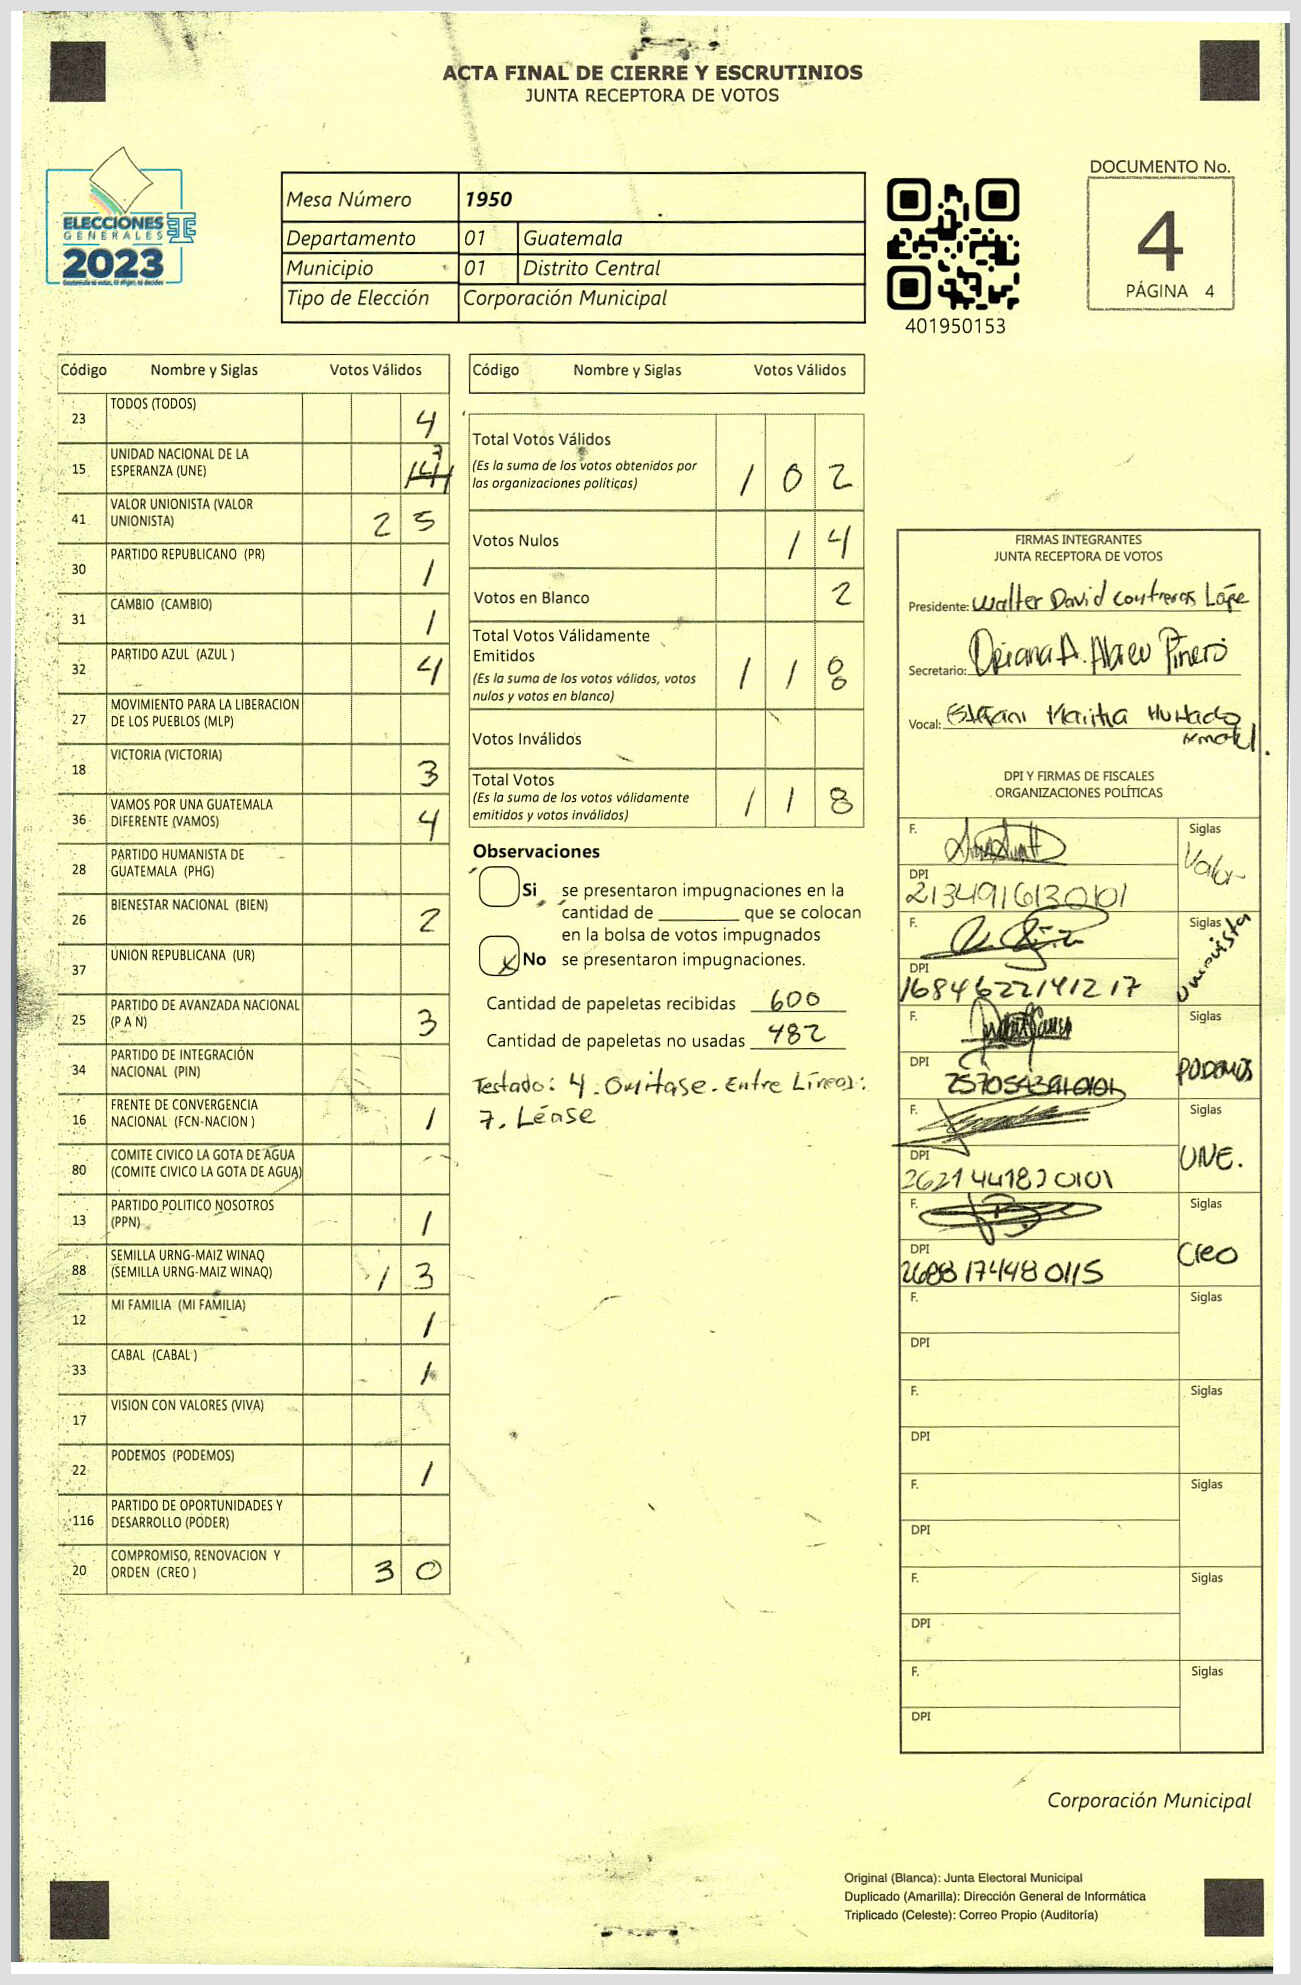 ACTA FINAL DE CIERRE Y ESCRUTINIOS
JUNTA RECEPTORA DE VOTOS
ELECCIONES
GENERALES
2023
Mesa Número 1950
Departamento 01 Guatemala
Municipio 01 Distrito Central
Tipo de Elección Corporación Municipal
401950153
DOCUMENTO No.
4
PÁGINA 4
Código Nombre y Siglas Votos Válidos
23 TODOS (TODOS) 4
15 UNIDAD NACIONAL DE LA ESPERANZA (UNE) 7
41 VALOR UNIONISTA (VALOR UNIONISTA) 2 5
30 PARTIDO REPUBLICANO (PR) 1
31 CAMBIO (CAMBIO) 1
32 PARTIDO AZUL (AZUL ) 4
27 MOVIMIENTO PARA LA LIBERACION DE LOS PUEBLOS (MLP)
18 VICTORIA (VICTORIA) 3
36 VAMOS POR UNA GUATEMALA DIFERENTE (VAMOS) 4
28 PARTIDO HUMANISTA DE GUATEMALA (PHG)
26 BIENESTAR NACIONAL (BIEN) 2
37 UNION REPUBLICANA (UR)
25 PARTIDO DE AVANZADA NACIONAL (P A N) 3
34 PARTIDO DE INTEGRACIÓN NACIONAL (PIN)
16 FRENTE DE CONVERGENCIA NACIONAL (FCN-NACION ) 1
80 COMITE CIVICO LA GOTA DE AGUA (COMITE CIVICO LA GOTA DE AGUA)
13 PARTIDO POLITICO NOSOTROS (PPN) 1
88 SEMILLA URNG-MAIZ WINAQ (SEMILLA URNG-MAIZ WINAQ) 1 3
12 MI FAMILIA (MI FAMILIA) 1
33 CABAL (CABAL ) 1
17 VISION CON VALORES (VIVA)
22 PODEMOS (PODEMOS) 1
116 PARTIDO DE OPORTUNIDADES Y DESARROLLO (PODER)
20 COMPROMISO, RENOVACION Y ORDEN (CREO ) 3 0
Código Nombre y Siglas Votos Válidos
Total Votos Válidos 1 0 2
(Es la suma de los votos obtenidos por
las organizaciones políticas)
Votos Nulos 1 4
Votos en Blanco 2
Total Votos Válidamente
Emitidos 1 1 8
(Es la suma de los votos válidos, votos
nulos y votos en blanco)
Votos Inválidos
Total Votos 1 1 8
(Es la suma de los votos válidamente
emitidos y votos inválidos)
Observaciones
Si se presentaron impugnaciones en la
cantidad de ________ que se colocan
en la bolsa de votos impugnados
X No se presentaron impugnaciones.
Cantidad de papeletas recibidas 600
Cantidad de papeletas no usadas 482
Testado: 4. Omitase. Entre Líneas:
7. Léase
FIRMAS INTEGRANTES
JUNTA RECEPTORA DE VOTOS
Presidente: Walter David Contreras Lópe
Secretario:
Vocal:
DPI Y FIRMAS DE FISCALES
ORGANIZACIONES POLÍTICAS
F. Siglas
Valor
DPI
2134916130101
F. Siglas
unionista
DPI
1684622141217
F. Siglas
PODEMOS
DPI
F. Siglas
UNE.
DPI
F. Siglas
Creo
DPI
2688174480115
F. Siglas
DPI
F. Siglas
DPI
F. Siglas
DPI
F. Siglas
DPI
F. Siglas
DPI
Corporación Municipal
Original (Blanca): Junta Electoral Municipal
Duplicado (Amarilla): Dirección General de Informática
Triplicado (Celeste): Correo Propio (Auditoría)